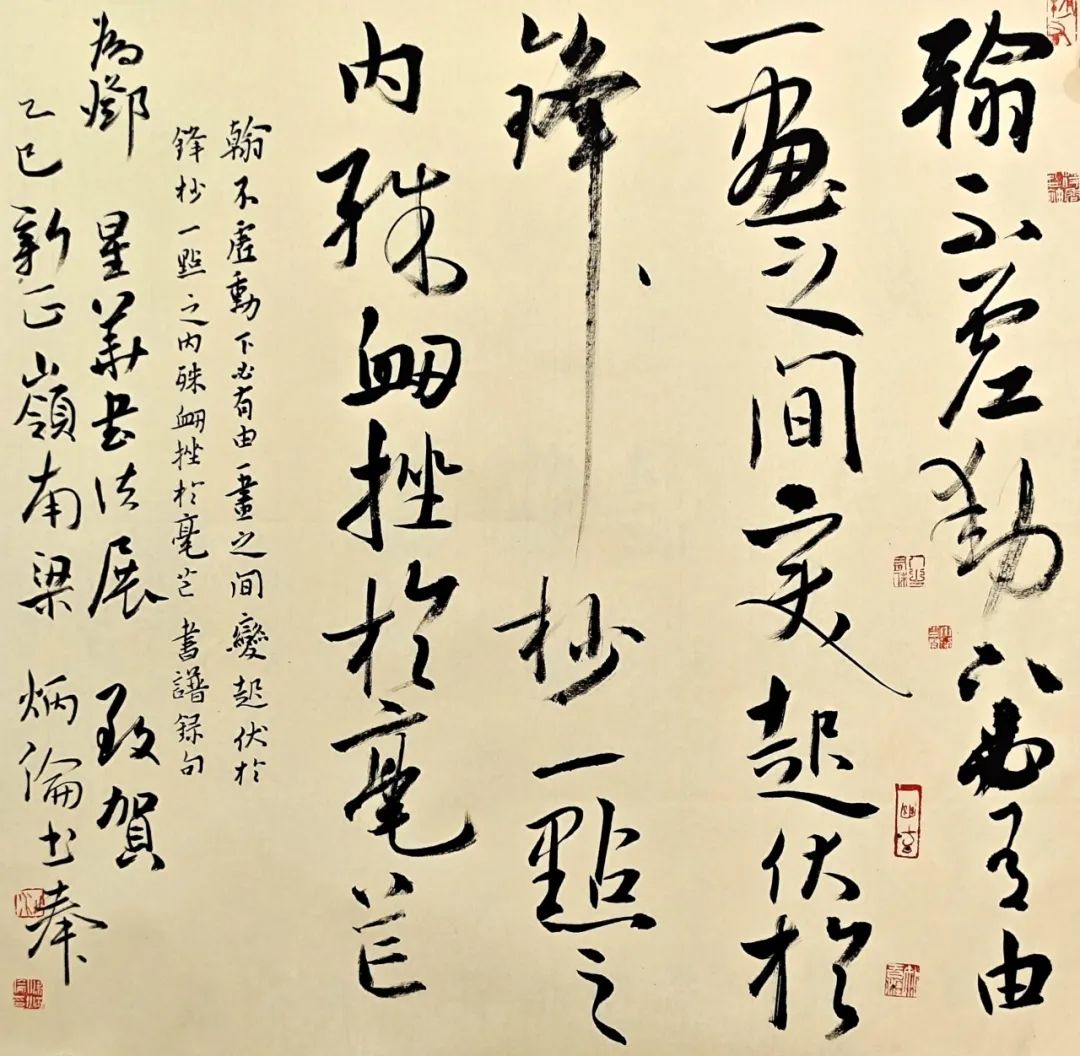 翰不虛動下必有由
一畫之間變起伏於
鋒杪一點之
內殊衄挫於毫芒
翰不虛動下必有由一畫之間變起伏於
鋒杪一點之內殊衄挫於毫芒 書譜錄句
為鄧 星華書法展 致賀
乙巳新正嶺南梁 炳倫書奉